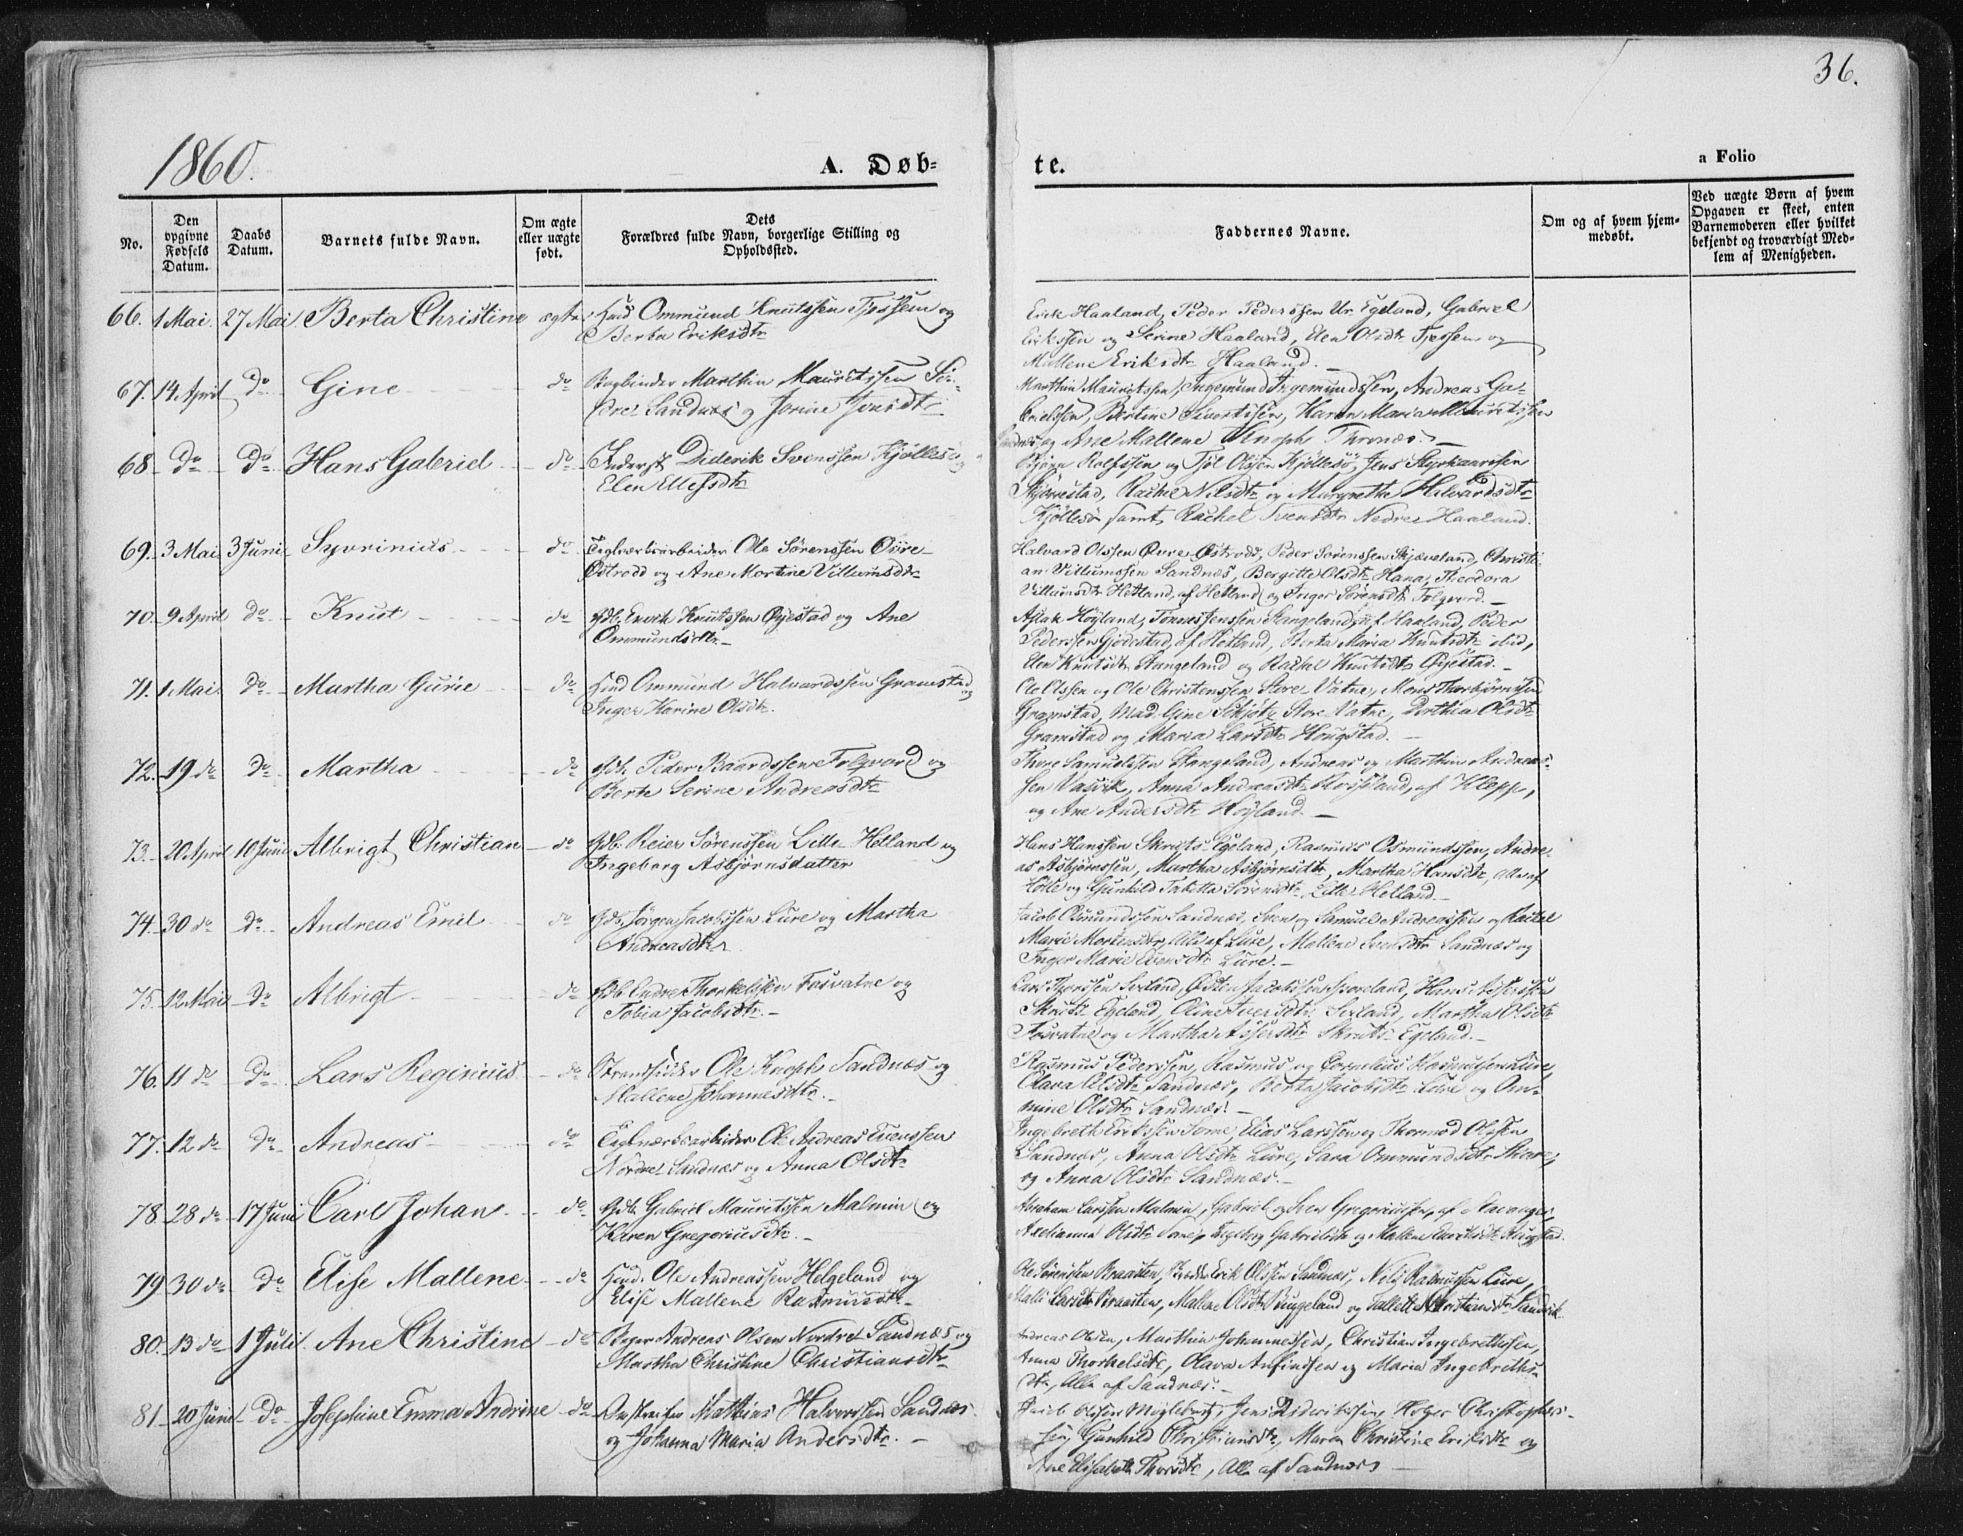 36.
1860.
A. Døb-
te.
a Folio
No.
Den opgivne Fødsels Datum.
Daabs Datum.
Barnets fulde Navn.
Om ægte eller uægte født.
Dets Forældres fulde Navn, borgerlige Stilling og Opholdssted.
Faddernes Navne.
Om og af hvem hjem-
medøbt.
Ved uægte Børn af hvem
Opgaven er skeet, enten
Barnemoderen eller hvilket
bekjendt og troværdigt Med-
lem af Menigheden.
66. 1 Mai. 27 Mai Berta Christine ægte Ommund Knutssen Tjessem og
Berta Eriksdtr
Erik Haaland, Peder Pederssen Ur. Egeland, Gabriel
Erikssen og Serine Haaland, Elen Olsdtr Tjessem og
Mallene Eriksdtr Haaland.
67. 14 April do Gine do Bogbinder Marthin Mauritssen
Sandnæs og Jorine Jonsdtr
Marthin Mauritssen, Ingemund Ingemundssen, Andreas Ga-
brielssen, Bertine Sivertssen, Karen Maria Mauritssen
og Ane Mallene Knoph Thronæs.
68. do do Hans Gabriel do Inderst Diderik Svenssen Kjøllesø og
Elen Ellefsdtr
Bjørn Rolfssen og Tjøl Olssen Kjøllesø, Jens Styrkaarssen
Skjørrestad, Rachel Nilsdtr og Margretha Halvardsdtr
Kjøllesø samt Rachel Svensdtr Nedre Haaland.
69. 3 Mai 3 Juni Syvrinius do Teglværksarbeider Ole Sørenssen Øvre
Østrodd og Ane Mortine Villumsdtr
Halvard Olssen Øvre Østrodd, Peder Sørenssen Skjæveland, Christi-
an Villumssen Sandnæs, Bergitte Olsdtr Hana, Theodora
Villumsdtr Hetland, af Hetland og Inger Sørensdtr Folqvord.
70. 9 April do Knut do Gdb. Knutssen Øyestad og Ane
Ommundsdtr
Aslak Høyland, Tønnes Jenssen Stangeland, af Haaland, Peder
Pederssen Gjødestad, af Hetland, Berta Maria Knutsdtr
Elen Knutsdtr Stangeland og Rachel Knutsdtr Øyestad.
71. 1 Mai do Martha Gurie do Hmd Ommund Halvardssen Gramstad og
Inger Karine Olsdtr.
Ole Olssen og Ole Christenssen Store Vatne, Mons Thorbjørnssen
Gramstad, Mad. Gine Schjøtz Store Vatne, Dorthea Olsdtr
Gramstad og Maria Larsdtr Hougstad.
72. 19 do do Martha do Gdb. Peder Baardssen Folqvord og
Berte Serine Andreasdtr
Thore Samuelssen Stangeland, Andreas og Marthin Andreas-
sen Vasvik, Anna Andreasdtr af Klepp,
og Ane Andersdtr Høyland.
73. 20 April 10 Juni Albrigt Christian do Gdb. Reier Sørenssen Lille Hetland og
Ingeborg Asbjørnsdatter
Hans Hanssen Skruts Egeland, Rasmus Osmundssen, Andre-
as Asbjørnssen, Martha Asbjørnsdtr, Martha Hansdtr, alle af
Hole og Gunhild Tabitta Sørensdtr Lille Hetland.
74. 30 do do Andreas Emil do Gdb. Jørgen Jacobssen Lure og Martha
Andreasdtr
Jacob Osmundssen Sandnæs, Sven og Samuel Andreassen og Rachel
Marie Mortensdtr, Alle af Lure, Mallene Svensdtr Sandnæs og
Inger Marie Svensdtr Lure.
75. 12 Mai do Albrigt do Gdb. Endre Thorkelssen Fosvatne og
Tobia Jacobsdtr.
Lars Sexland, Østen Jacobssen, Hans Assersen
Skruts Egeland, Oline Iversdtr Sexland, Martha Olsdtr
Fosvatne og Martha Assersdtr Skruts Egeland.
76. 11 do do Lars Reginius do Strandsidder Ole Knoph Sandnæs og
Mallene Johannesdtr.
Rasmus Pederssen, Rasmus og Cornelius Rasmussen Lure,
Olava Olsdtr Sandnæs, Berta Jacobsdtr Lure og Om-
mine Olsdtr Sandnæs.
77. 12 do do Andreas do Teglværksarbeider Ole Andreas Evenssen
Nordre Sandnæs og Anna Olsdtr
Ingebreth Erikssen Somme, Elias Larssen og Thormod Olssen
Sandnæs, Anna Olsdtr Lure, Sara Ommundsdtr
og Anna Olsdtr Sandnæs.
78. 28 do 17 Juni Carl Johan do Gdb. Gabriel Mauritssen Malmin og
Karen Gregoriusdtr.
Abraham Larssen Malmin, Gabriel og Sven Gregoriussen, af Stavanger,
Olsdtr Somme, Ingeborg Gabrielsdtr og Mallene
79. 30 do do Elise Mallene do Hmd. Ole Andreassen Helgeland og
Elise Mallene Rasmusdtr.
Ole Sørenssen Braasten, Erik Olssen Sandnæs, Nils Rasmussen Lure,
Malli Larsdtr Braasten, Mallene Olsdtr og
80. 13 do 1 Juli Ane Christine do Andreas Olsen Nordre Sandnæs og
Martha Christine Christiansdtr
Andreas Olsen, Marthin Johannessen, Christian Ingebrethssen,
Anna Thorkelsdtr, Olava Anfindsen og Maria Ingebreths-
dtr, Alle af Sandnæs.
81. 20 Juni do Josephine Emma Andrine do Mathias Halvorssen Sandnæs
og Johanna Maria Andersdtr.
Jacob Olssen Møglebust, Jens Dideriksssen, Holger Christophers-
sen, Gunhild Christiansdtr, Maren Christine Eriksdtr og
Ane Elisabeth Thorsdtr, Alle af Sandnæs